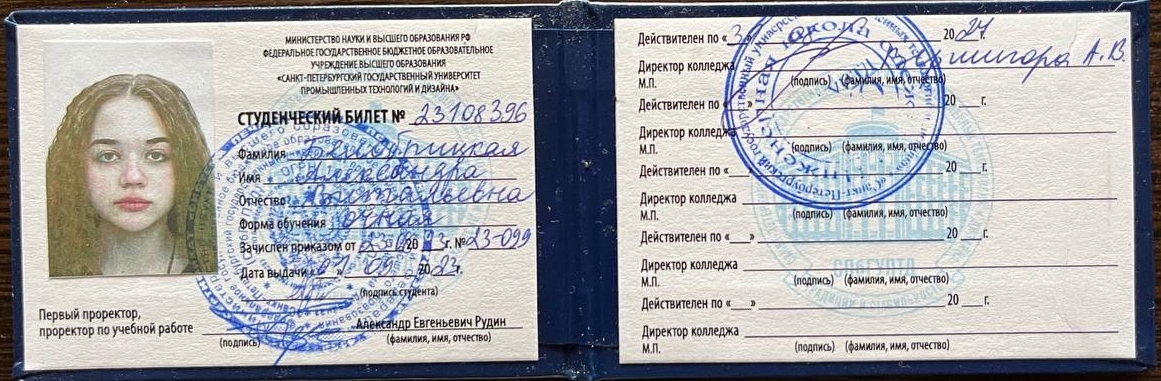 МИНИСТЕРСТВО НАУКИ И ВЫСШЕГО ОБРАЗОВАНИЯ РФ
ФЕДЕРАЛЬНОЕ ГОСУДАРСТВЕННОЕ БЮДЖЕТНОЕ ОБРАЗОВАТЕЛЬНОЕ
УЧРЕЖДЕНИЕ ВЫСШЕГО ОБРАЗОВАНИЯ
«САНКТ-ПЕТЕРБУРГСКИЙ ГОСУДАРСТВЕННЫЙ УНИВЕРСИТЕТ
ПРОМЫШЛЕННЫХ ТЕХНОЛОГИЙ И ДИЗАЙНА»
СТУДЕНЧЕСКИЙ БИЛЕТ № 23108396
Фамилия
Имя Александра
Отчество Витальевна
Форма обучения очная
Зачислен приказом от 20 23г. №23-099
Дата выдачи « » 09. 2023г.
(подпись студента)
Первый проректор,
проректор по учебной работе Александр Евгеньевич Рудин
(подпись) (фамилия, имя, отчество)
Действителен по « 2024 г.
Директор колледжа А.В.
М.П. (подпись) (фамилия, имя, отчество)
Действителен по «___» 20___г.
Директор колледжа
М.П. (подпись) (фамилия, имя, отчество)
Действителен по «___» 20___г.
Директор колледжа
М.П. (подпись) (фамилия, имя, отчество)
Действителен по «___» 20___г.
Директор колледжа
М.П. (подпись) (фамилия, имя, отчество)
Действителен по «___» 20___г.
Директор колледжа
М.П. (подпись) (фамилия, имя, отчество)
СПбГУПТД